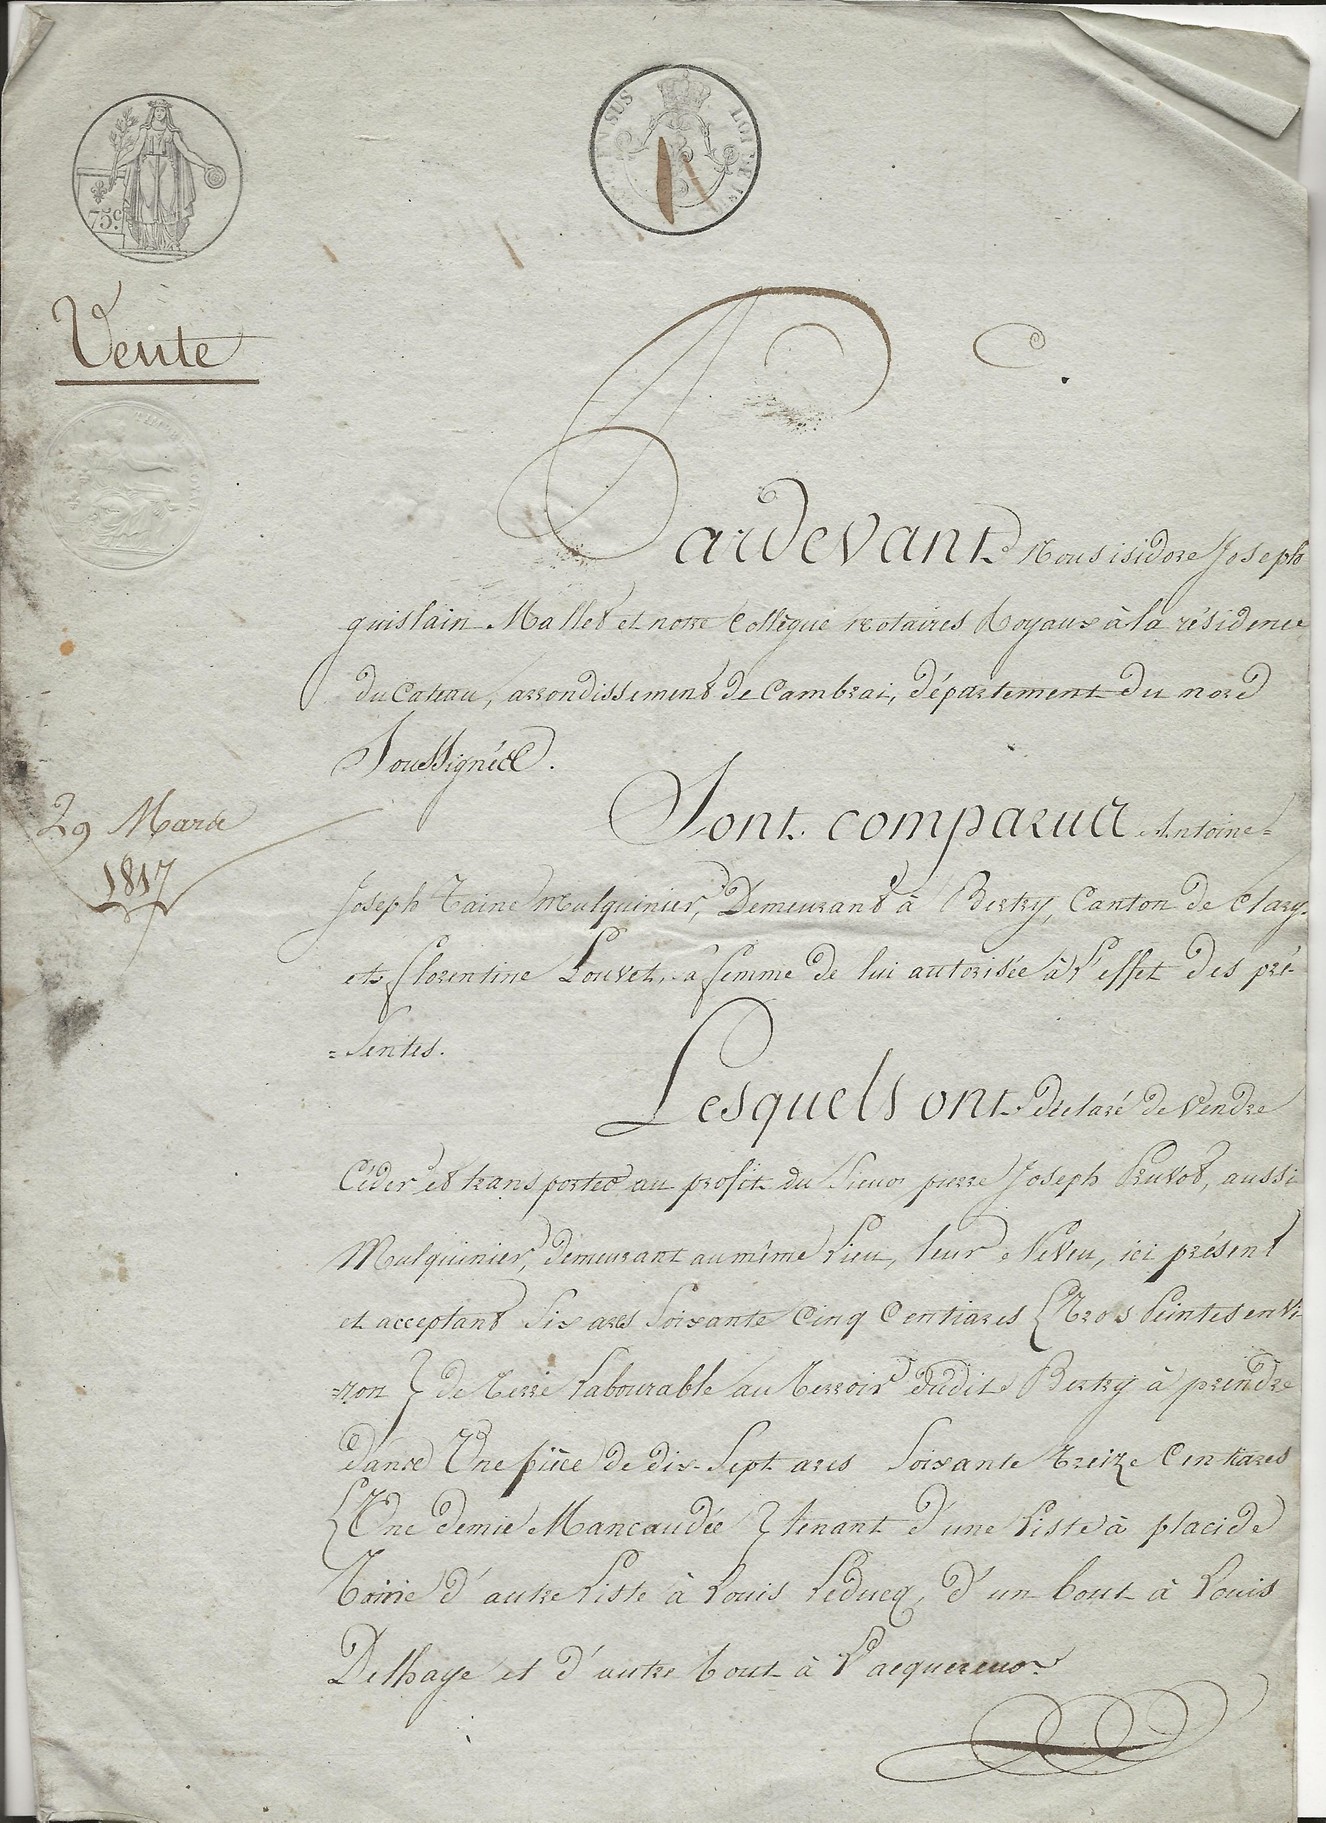 75c.
EN SUS
LOI DE 18
Vente
29 Mars
1817
Pardevant Nous isidore Joseph
guislain Mallet et notre Collègue notaires Royaux à la résidence
du Cateau, arrondissement de Cambrai, département du nord
Soussignés.
Sont comparus Antoine=
Joseph Taine Mulquinier, Demeurant à Bertry, Canton de Clary.
et florentine Louvet, sa femme de lui autorisée à l'effet des pré-
=sentes.
Lesquels ont déclaré de Vendre
Céder et transporter au profit du Sieur pierre Joseph Pruvot, aussi
Mulquinier, demeurant au même lieu, leur Neveu, ici présent
et acceptant Six ares Soixante Cinq Centiares { Trois Peintes envi-
=ron } de Terre labourable au terroir dudit Bertry à prendre
dans Une pièce de dix-Sept ares Soixante treize Centiares
{ Une demie Mancaudée } tenant d'une liste à placide
Taine d'autre liste à Louis Leducq, d'un bout à Louis
Delhaye et d'autre bout à l'acquereur